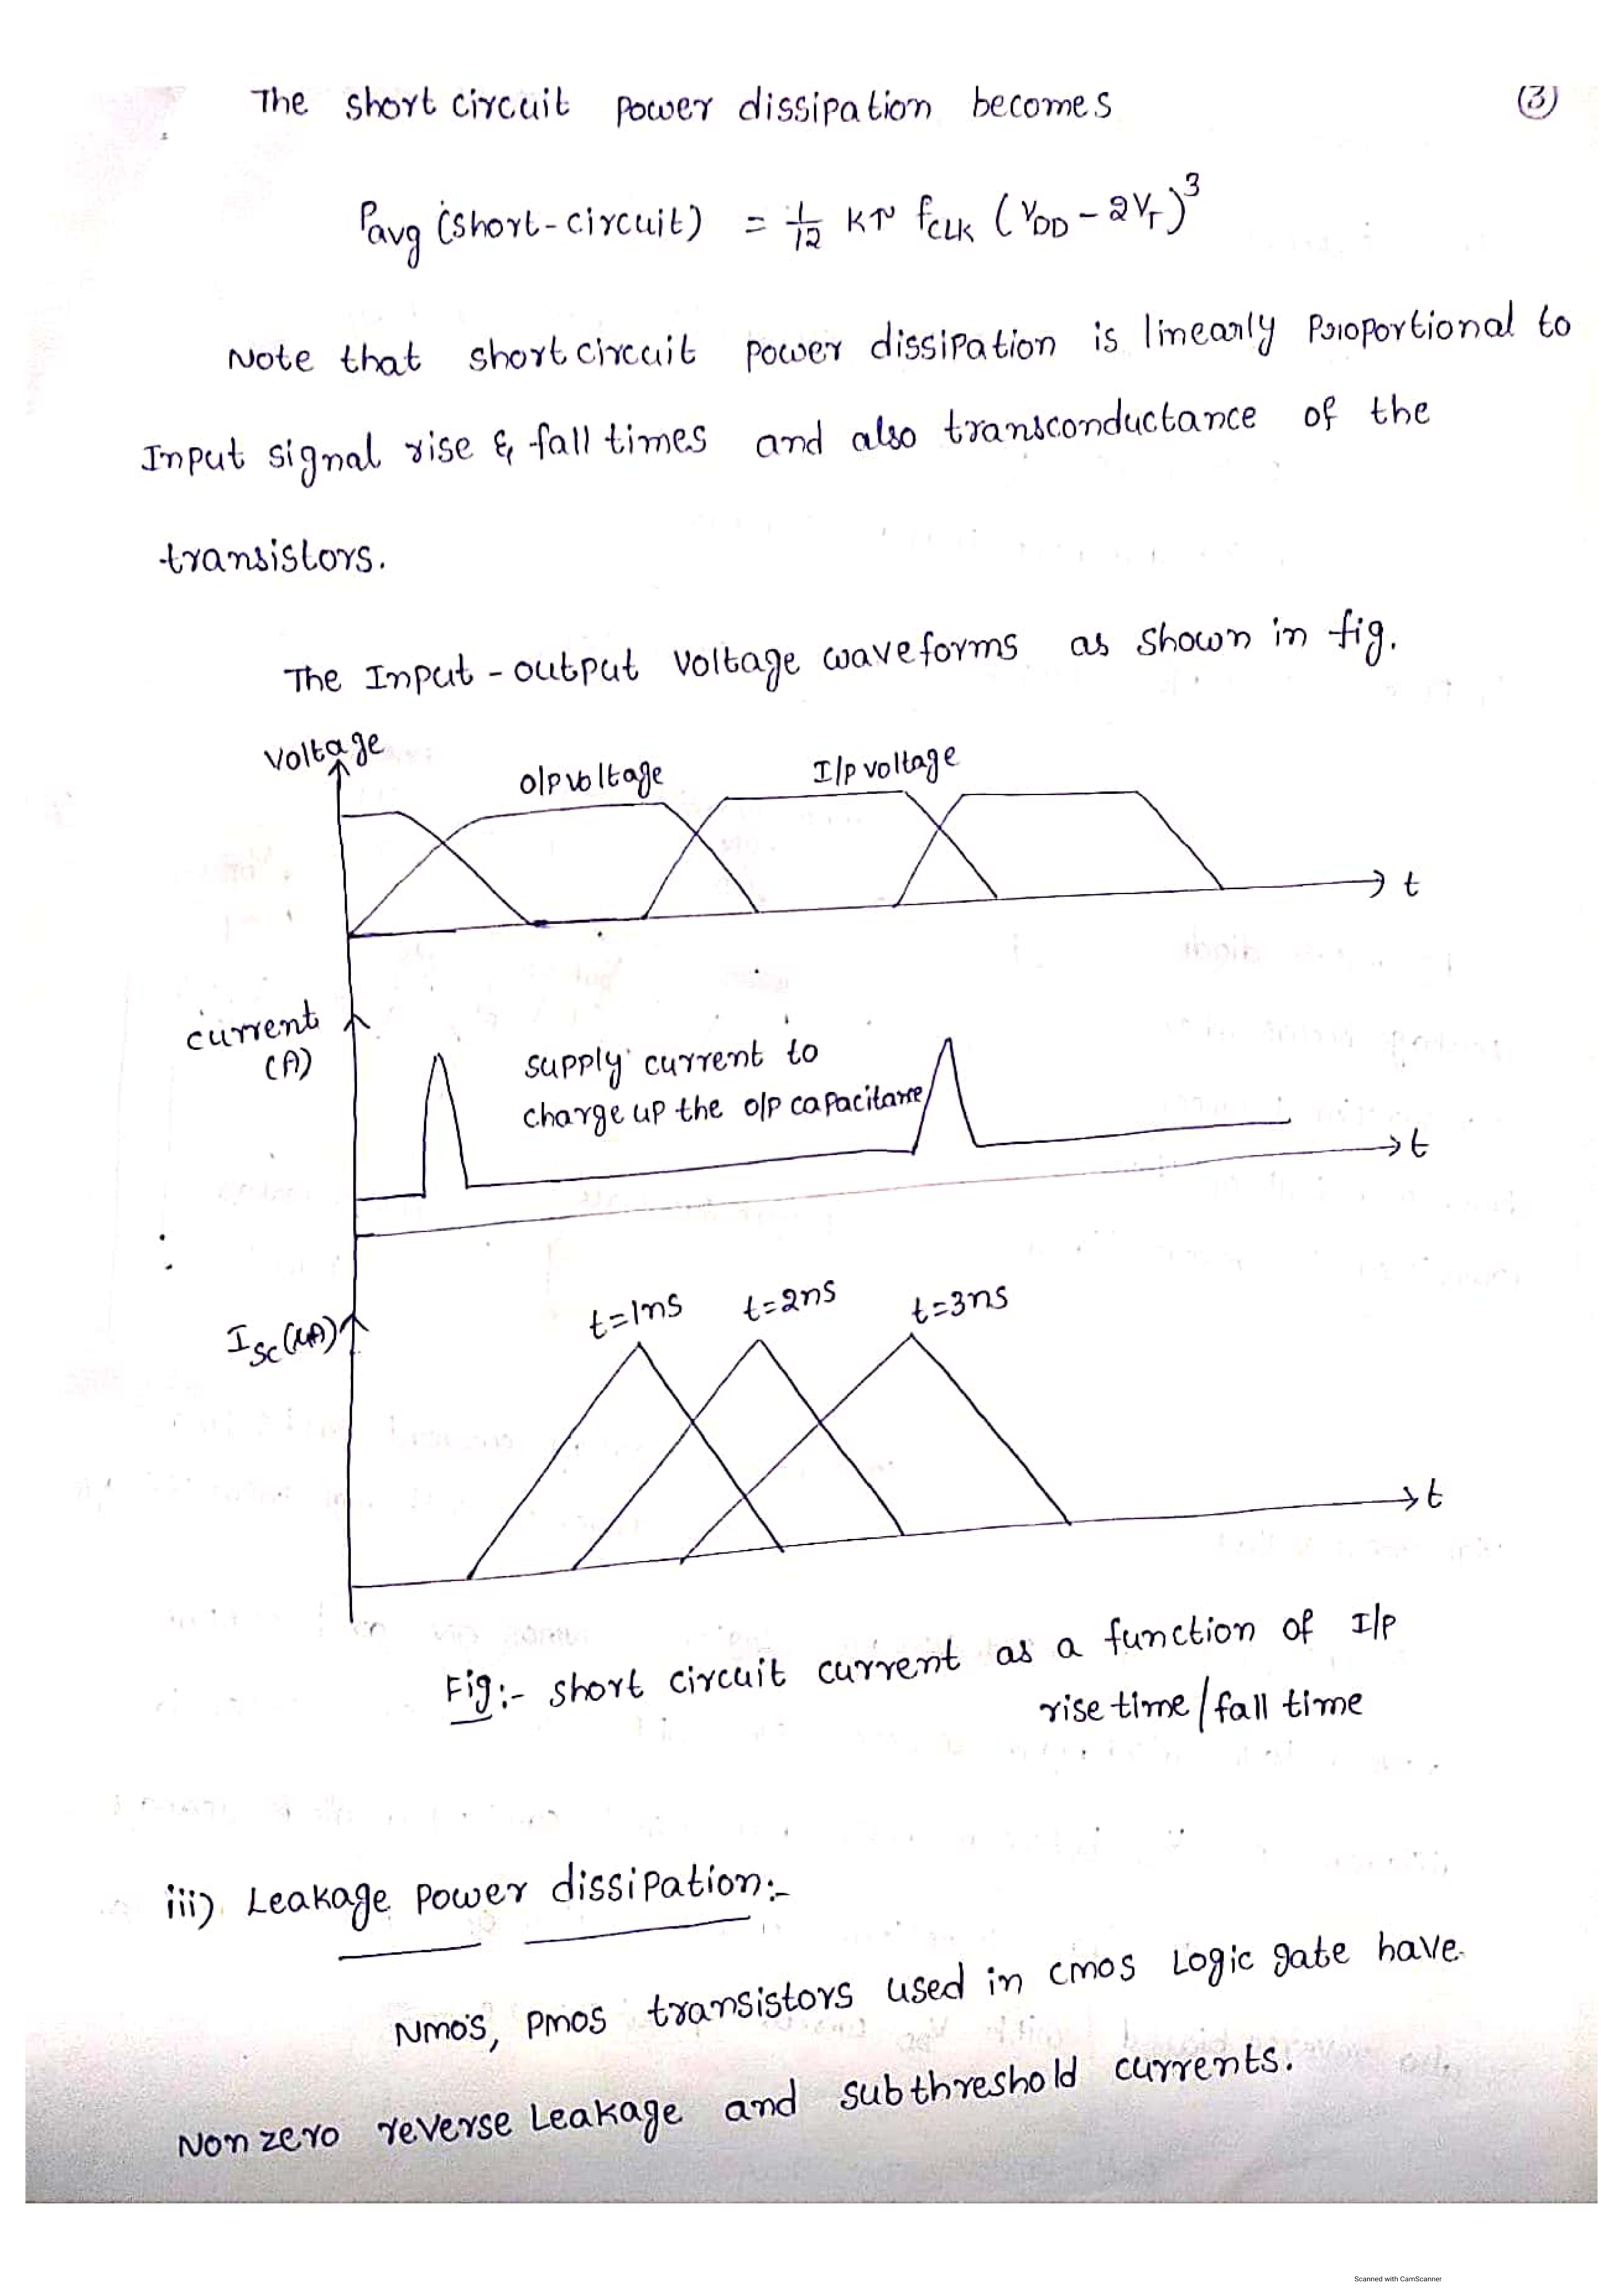 The short circuit power dissipation becomes
(3)
Pavg (short-circuit) = 1/12 K τ fCLK (VDD - 2VT)³
Note that short circuit power dissipation is linearly proportional to
Input signal rise & fall times and also transconductance of the
transistors.
The Input - output voltage waveforms as shown in fig.
Voltage
o/p voltage
I/p voltage
t
current
(A)
supply current to
charge up the o/p capacitance
t
Isc (µA)
t=1ns
t=2ns
t=3ns
t
Fig:- short circuit current as a function of I/p
rise time / fall time
iii) Leakage power dissipation:-
Nmos, Pmos transistors used in cmos Logic gate have
Non zero reverse Leakage and subthreshold currents.
Scanned with CamScanner